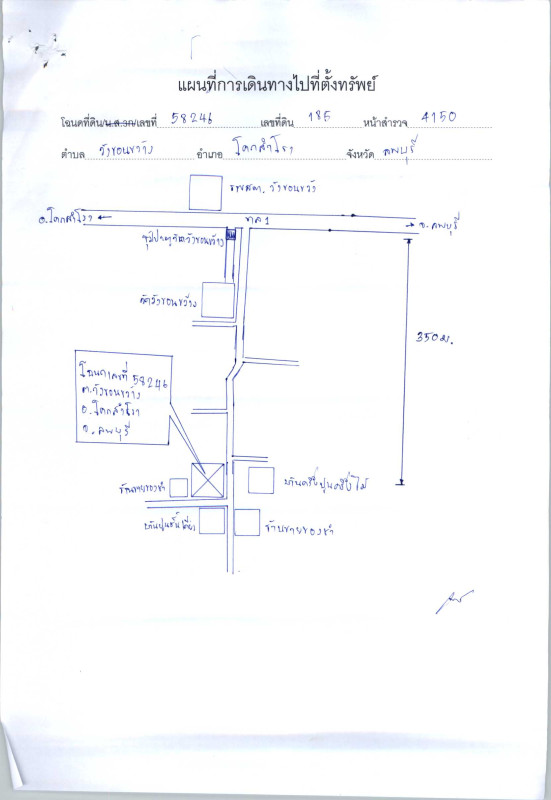 แผนที่การเดินทางไปที่ตั้งทรัพย์
โฉนดที่ดิน/น.ส.3ก/เลขที่ 58246 เลขที่ดิน 185 หน้าสำรวจ 4150
ตำบล วังขอนขว้าง อำเภอ โคกสำโรง จังหวัด ลพบุรี
รพสต. วังขอนขว้าง
อ.โคกสำโรง
ทล 1
จ.ลพบุรี
ซุ้มประตูวัดวังขอนขว้าง
วัดวังขอนขว้าง
350 ม.
โฉนดเลขที่ 58246
ต.วังขอนขว้าง
อ.โคกสำโรง
จ.ลพบุรี
ร้านขายของชำ
บ้านครึ่งปูนครึ่งไม้
บ้านปูนชั้นเดียว
ร้านขายของชำ